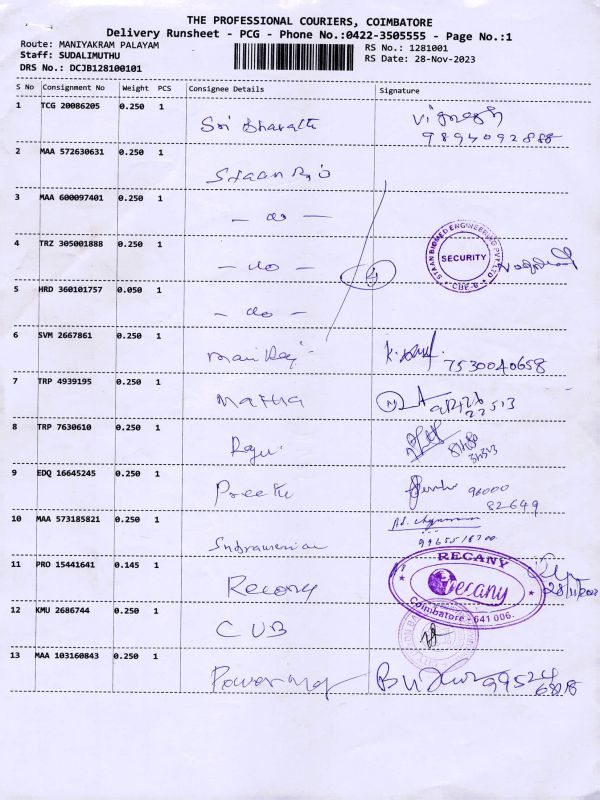 THE PROFESSIONAL COURIERS, COIMBATORE
Delivery Runsheet - PCG - Phone No.:0422-3505555 - Page No.:1
Route: MANIYAKRAM PALAYAM
RS No.: 1281001
Staff: SUDALIMUTHU
RS Date: 28-Nov-2023
DRS No.: DCJB128100101
S No Consignment No Weight PCS Consignee Details Signature
1 TCG 20086205 0.250 1 Sri Bharath
9894092888
2 MAA 572630631 0.250 1 Staan Bio
3 MAA 600097401 0.250 1 - do -
4 TRZ 305001888 0.250 1 - do -
STAAN BIOMED ENGINEERING PVT LTD
SECURITY
CBE-6
5 HRD 360101757 0.050 1 - do -
6 SVM 2667861 0.250 1 Mani Raj
7530040658
7 TRP 4939195 0.250 1
22513
8 TRP 7630610 0.250 1 Raju
9 EDQ 16645245 0.250 1 Preethi
96000
82649
10 MAA 573185821 0.250 1
11 PRO 15441641 0.145 1 Recany
RECANY
Recany
Coimbatore - 641 006.
12 KMU 2686744 0.250 1 CUB
13 MAA 103160843 0.250 1
99524